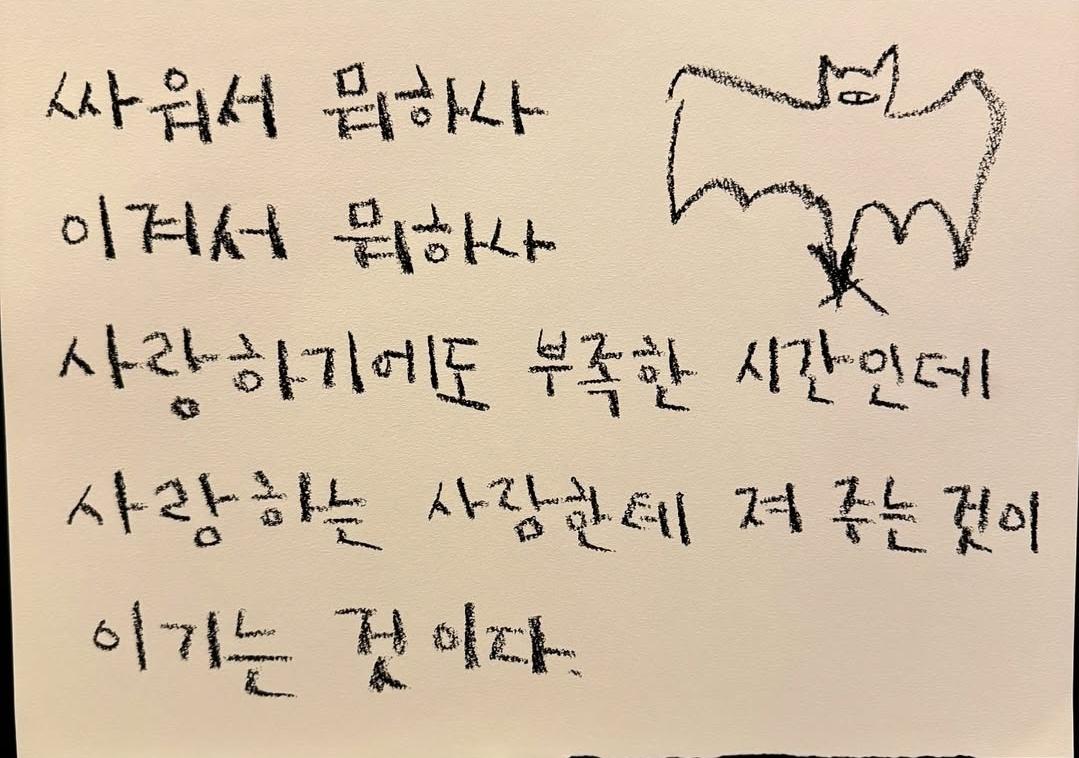 싸워서 뭐하나
이겨서 뭐하나
사랑하기에도 부족한 시간인데
사랑하는 사람한테 져 주는 것이
이기는 것이다.